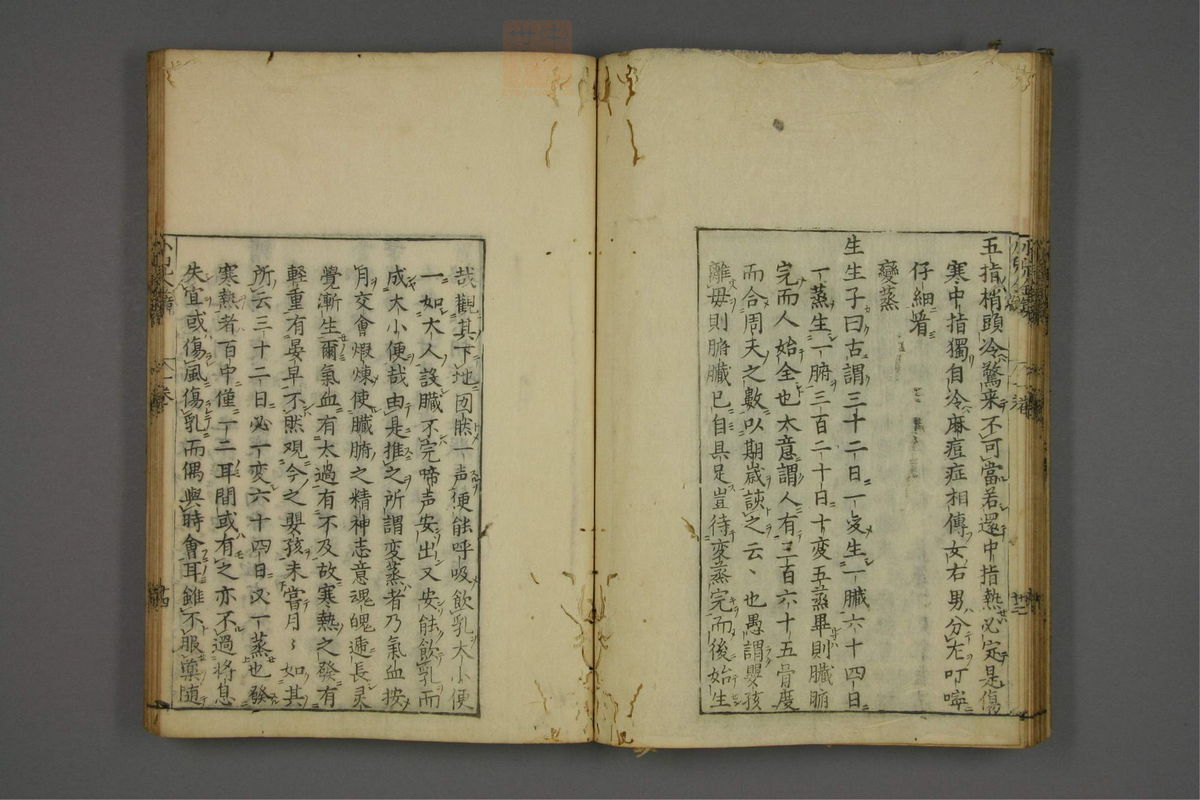 五指梢頭冷驚来不可當若還中指熱必定是傷
寒中指獨自冷麻痘症相傳女右男分左叮嚀
仔細看
變蒸
生生子曰古謂三十二日一変生一臓六十四日
一蒸生一腑三百二十日十変五蒸畢則臓腑
完而人始全也太意謂人有三百六十五骨度
而合周天之數以期歳該之云〻也愚謂嬰孩
離毋則腑臓已自具足豈待変蒸完而後始生
哉觀其下地囙然一声便能呼吸飲乳大小便
一如大人設臓不完啼声安出又安能飲乳而
成大小便哉由是推之所謂変蒸者乃氣血按
月交會煆煉使臓腑之精神志意魂魄逓長灵
覺漸生爾氣血有太過有不及故寒熱之發有
軽重有晏早不然观今之嬰孩未嘗月〻如其
所云三十二日必一変六十四日又一蒸也發
寒熱者百中僅一二耳間或有之亦不過将息
失宜或傷風傷乳而偶與時會耳雖不服藥随